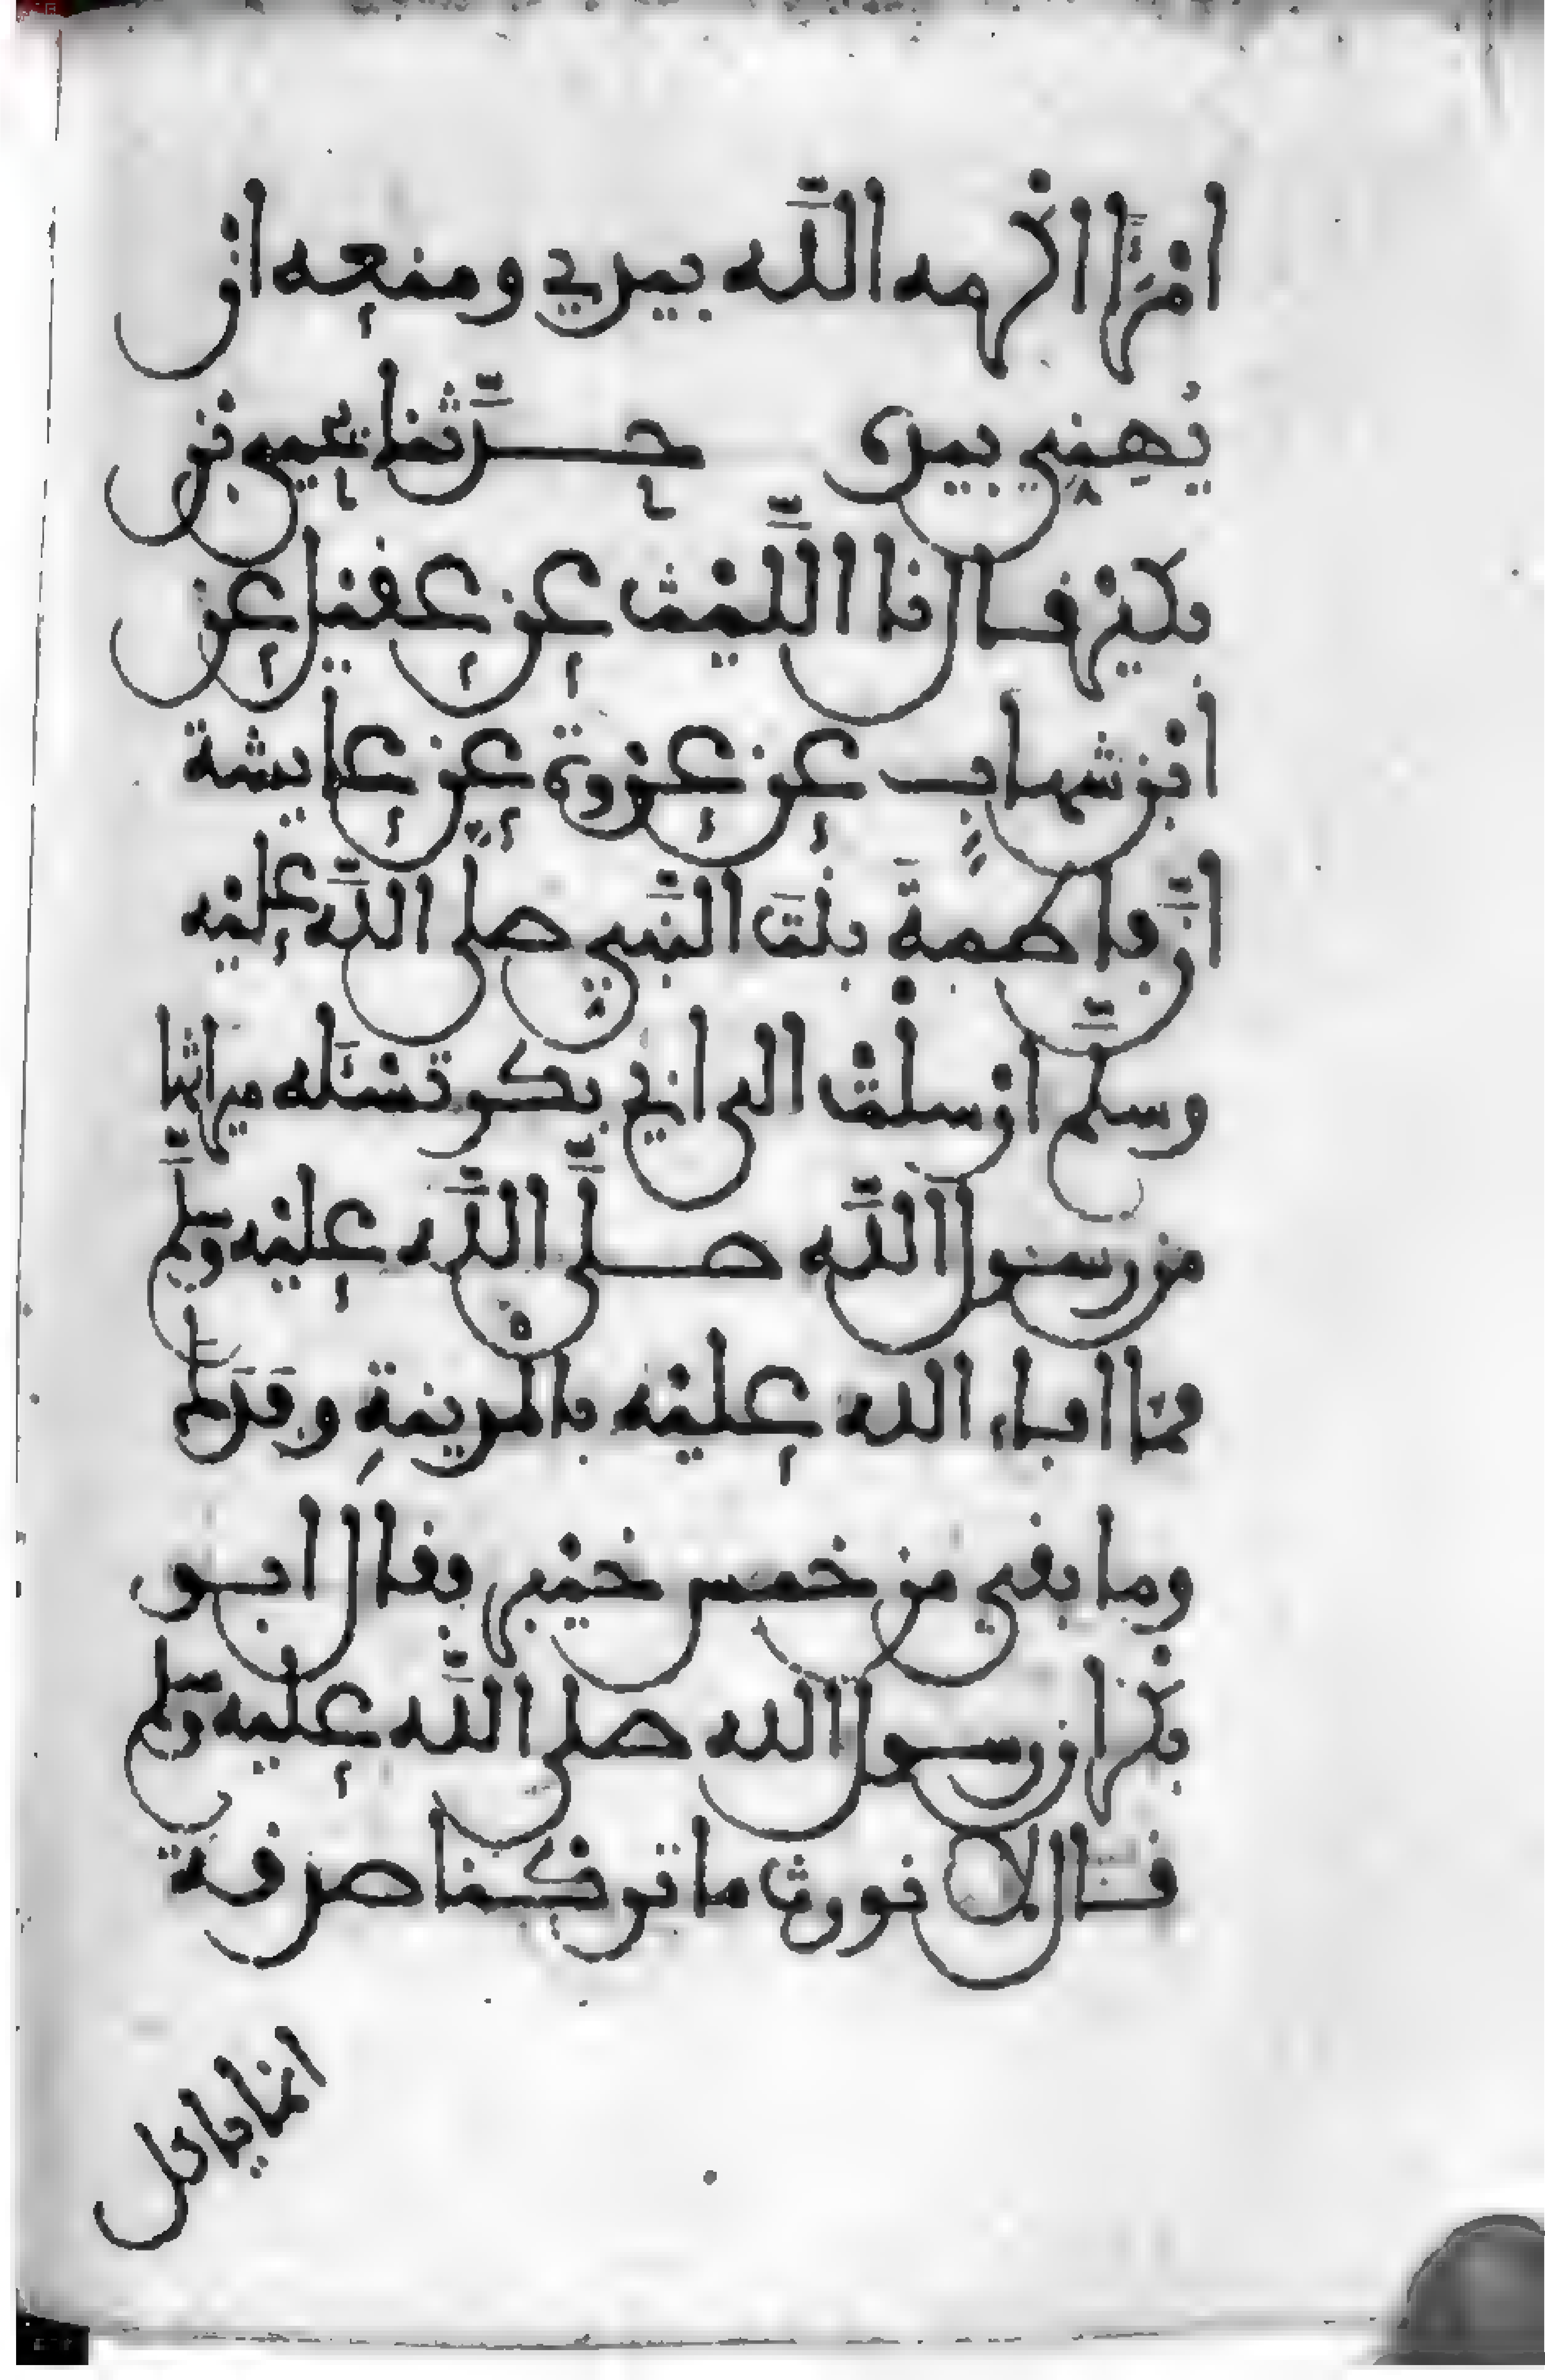 امرأ اكرمه الله بيدي ومنعه ان
يهني بيده حدثنا يحيى بن
بكير قال نا الليث عن عقيل عن
ابن شهاب عن عروة عن عايشة
ان فاطمة بنت النبي صلى الله عليه
وسلم ارسلت الى ابي بكر تسئله ميراثها
من رسول الله صلى الله عليه وسلم
مما افاء الله عليه بالمدينة وفدك
وما بقي من خمس خيبر فقال ابو
بكر ان رسول الله صلى الله عليه وسلم
قال لا نورث ما تركنا صدقة
انما ياكل